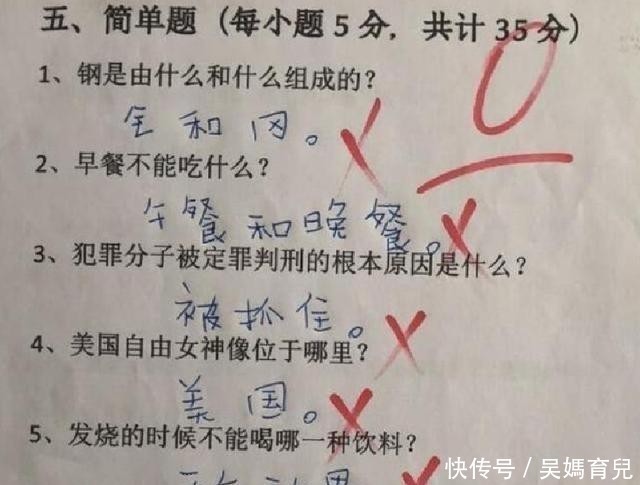 五、简单题（每小题 5 分，共计 35 分）
0
1、钢是由什么和什么组成的？
钅和冈。
2、早餐不能吃什么？
午餐和晚餐。
3、犯罪分子被定罪判刑的根本原因是什么？
被抓住。
4、美国自由女神像位于哪里？
美国。
5、发烧的时候不能喝哪一种饮料？
快传号／吴媽育兒